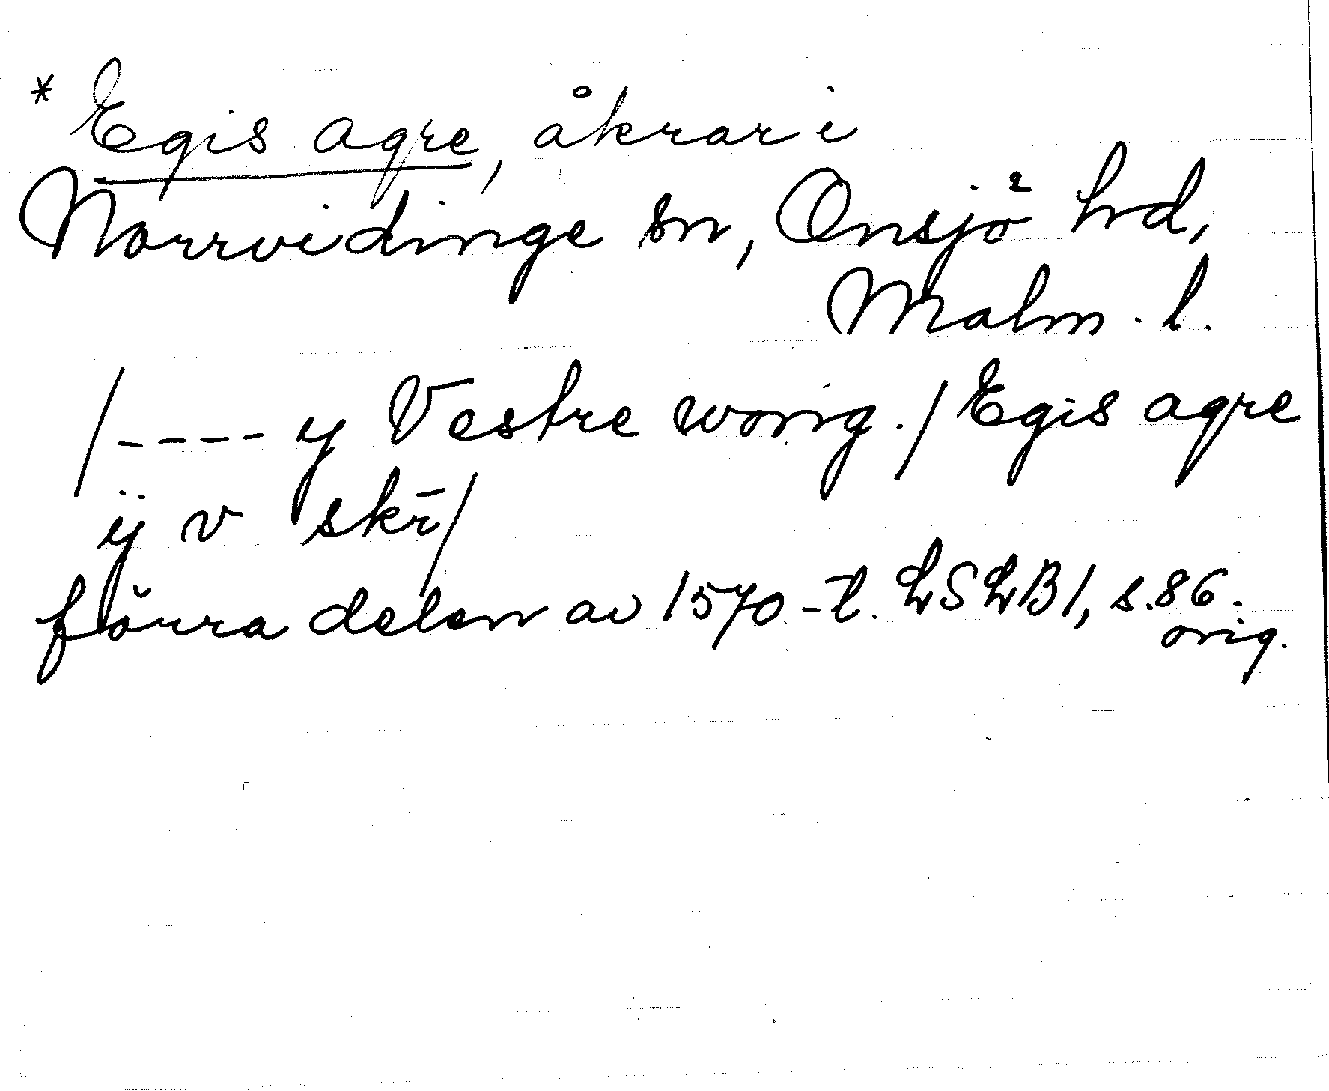 * Egis agre, åkrar i
Norrvidinge sn, Onsjö hd,
Malm. l.
/---- y Vestre wong./ Egis agre
ÿ v skr̄/
förra delen av 1570-t. LSLB1, s.86.
orig.